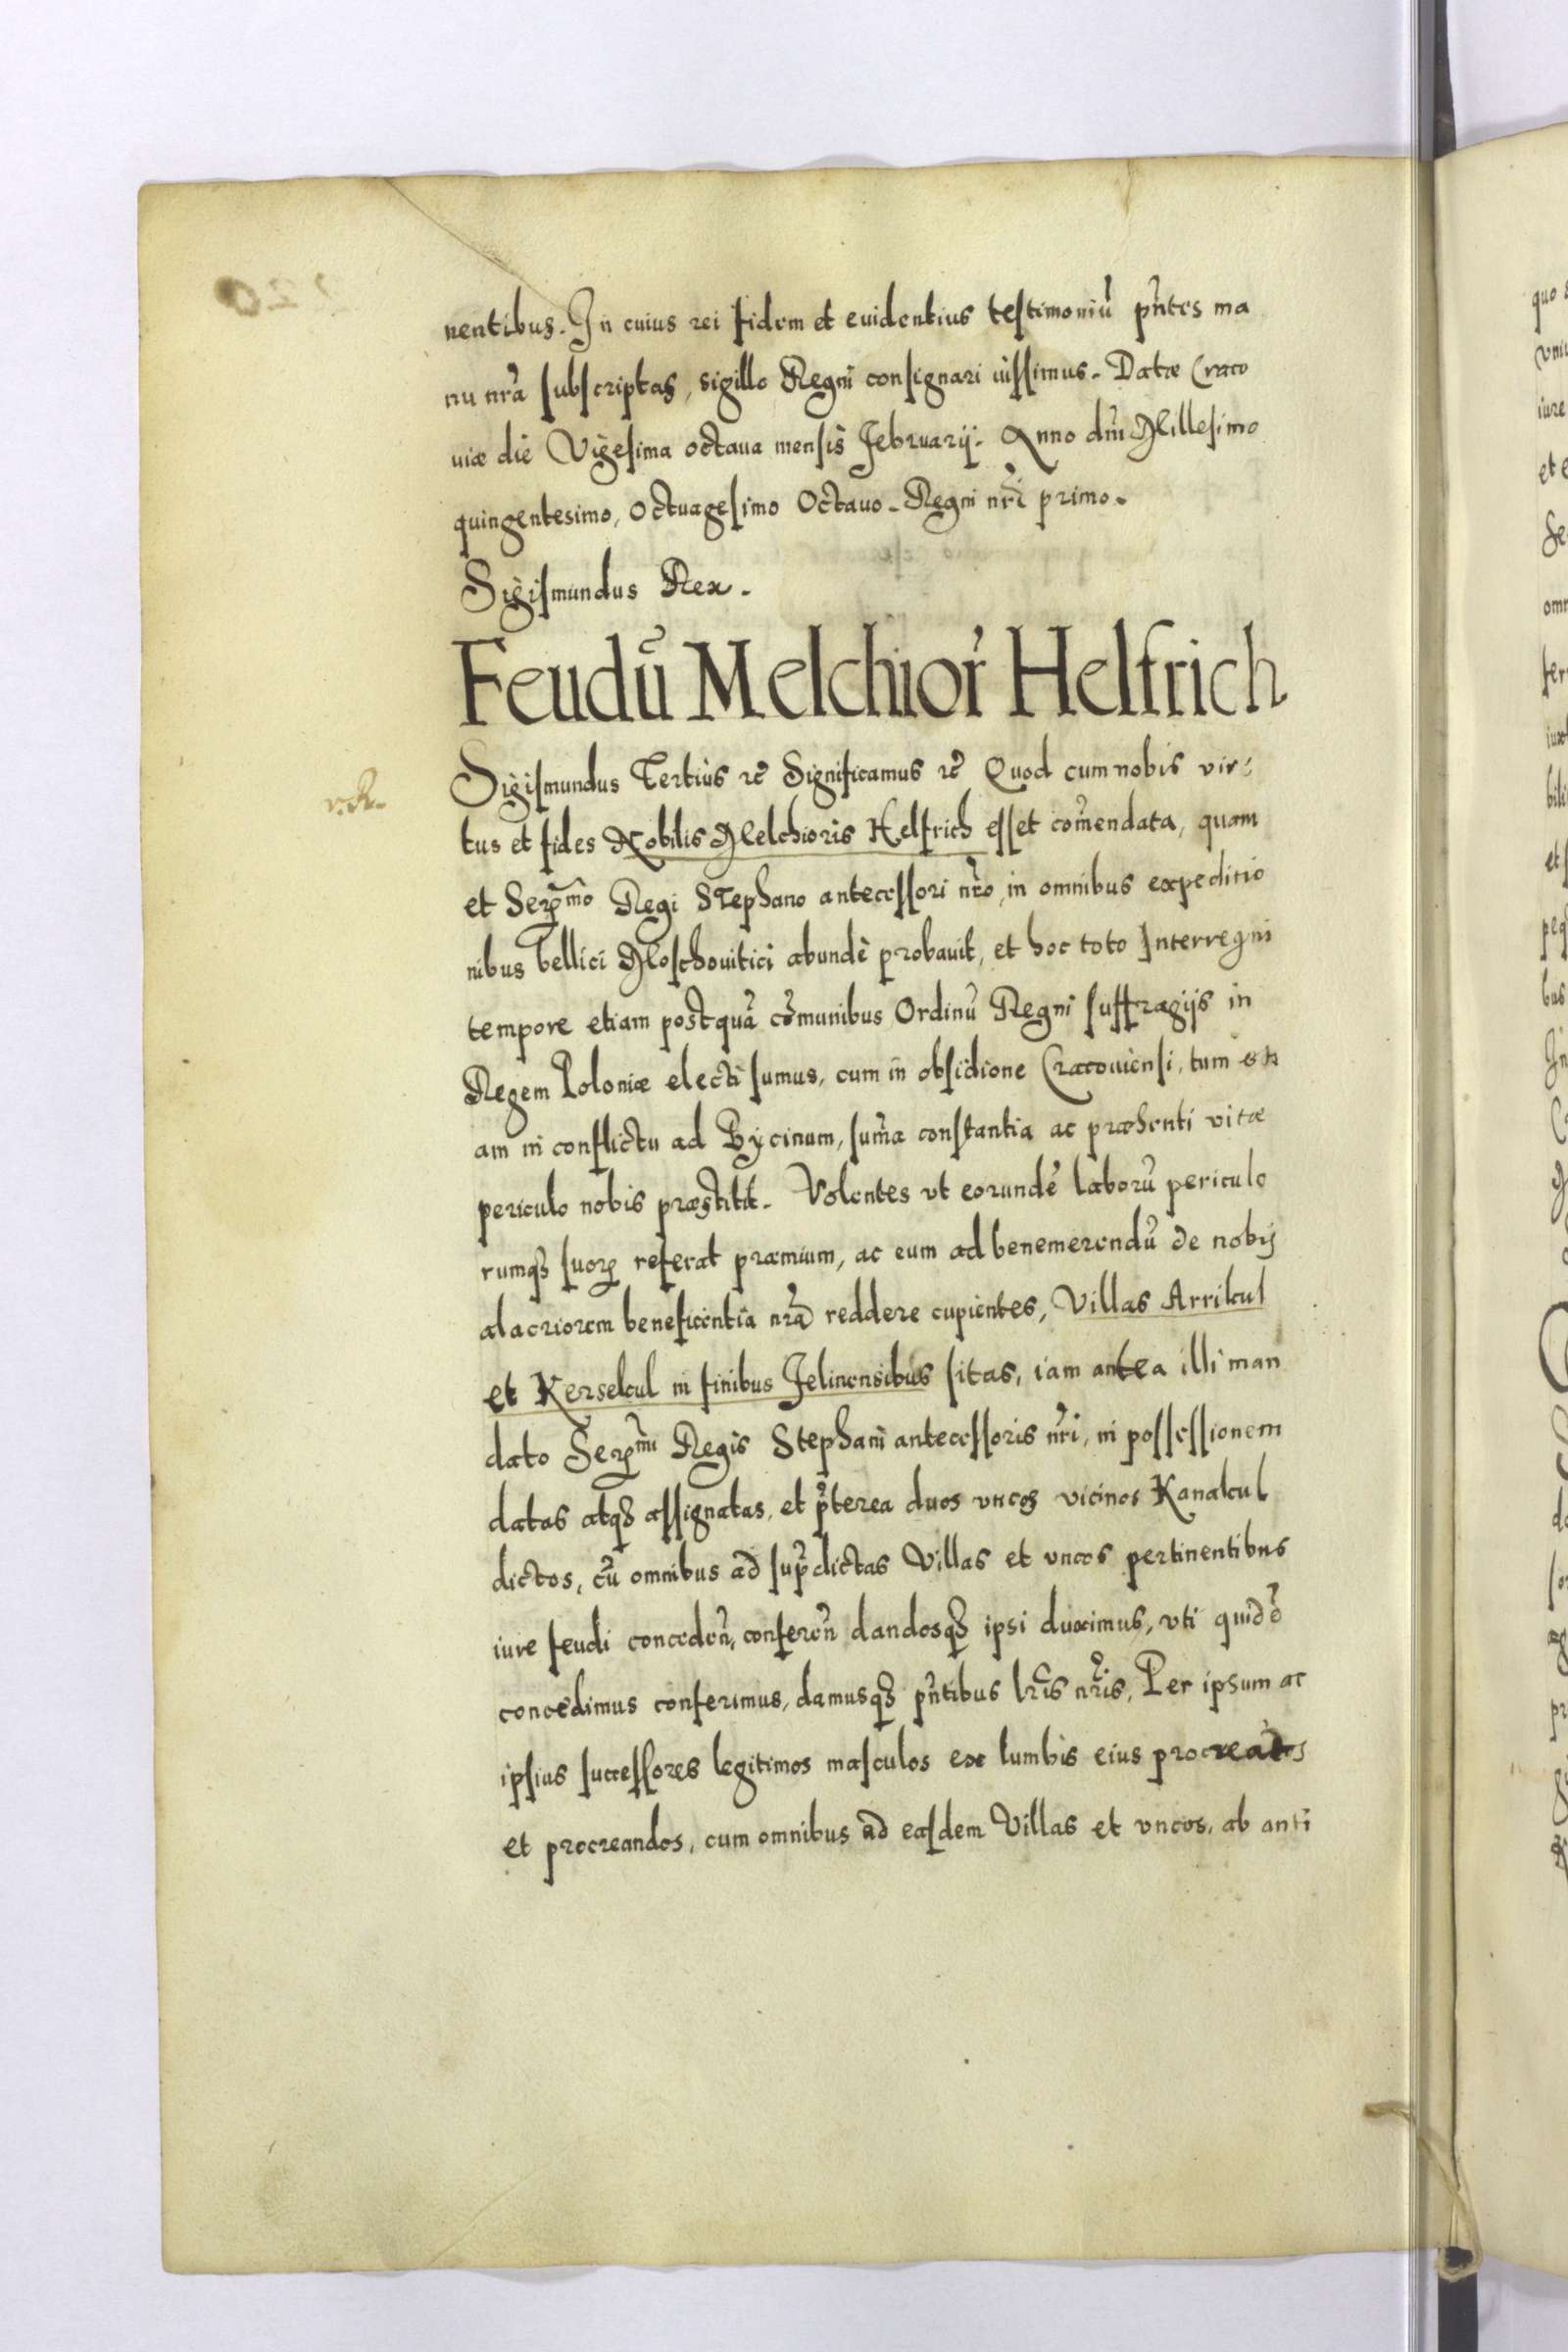 nentibus. In cuius rei fidem et euidentius testimoniũ pñtes ma
nu nrã subscriptas, sigillo Regni consignari iussimus. Datæ Craco
uiæ die Vigesima octaua mensis Februarij. Anno dñi Millesimo
quingentesimo, octuagesimo Octauo. Regni nrĩ primo.
Sigismundus Rex.
Feudũ Melchior Helfrich
Sigismundus Tertius etc̃ Significamus etc̃ Quod cum nobis vir:
tus et fides Nobilis Melchioris Helfrich esset com̃endata, quam
et Serꝫmo Regi Stephano antecessori nrõ, in omnibus expeditio
nibus bellici Moschouitici abundè probauit, et hoc toto Interregni
tempore etiam postquã com̃unibus Ordinũ Regni suffragijs in
Regem Poloniæ electi sumus, cum in obsidione Cracouiensi, tum eti
am in conflictu ad Bycinum, sum̃a constantia ac præsenti vitæ
periculo nobis præstitit. Volentes vt eorundẽ laborũ periculo
rumqꝫ suorꝫ referat præmium, ac eum ad benemerendũ de nobis
alacriorem beneficentia nrã reddere cupientes, Villas Arrikul
et Kerselkul in finibus Felinensibus sitas, iam antea illi man
dato Serꝫmi Regis Stephani antecessoris nrĩ, in possessionem
datas atqꝫ assignatas, et p̃terea duos vncos vicinos Kanakul
dictos, cũ omnibus ad sup̃dictas Villas et vncos pertinentibus
iure feudi conceden̄, conferen̄ dandosqꝫ ipsi duximus, vti quidẽ
concedimus conferimus, damusqꝫ pñtibus lrĩs nrĩs, Per ipsum ac
ipsius successores legitimos masculos ex lumbis eius procreatos
et procreandos, cum omnibus ad easdem Villas et vncos, ab anti